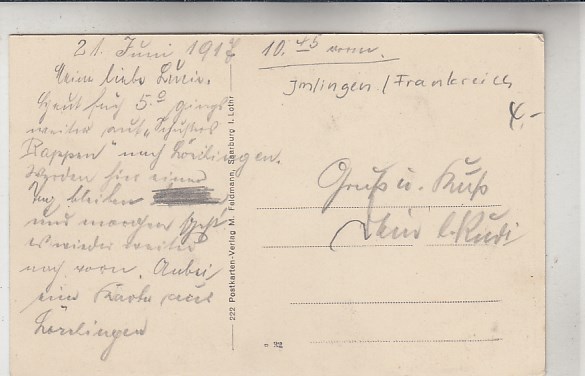 21. Juni 1917 10.45 vorm.
Meine liebe Luzie.
Heut früh 5.0 gings
weiter auf "Schusters
Rappen" nach Lörchingen.
Werden hier einen
Tag bleiben
und morgen geht
es wieder weiter
nach vorn. Anbei
eine Karte aus
Lörchingen
Imlingen / Frankreich
4,-
Gruß u. Kuß
Dein l. Rudi
222 Postkarten-Verlag M. Feldmann, Saarburg i. Lothr.